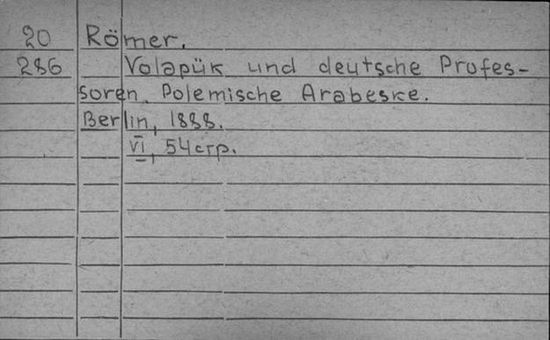 20 Römer.
286 Volapük und deutsche Profes-
soren. Polemische Arabeske.
Berlin, 1888.
VI, 54 стр.